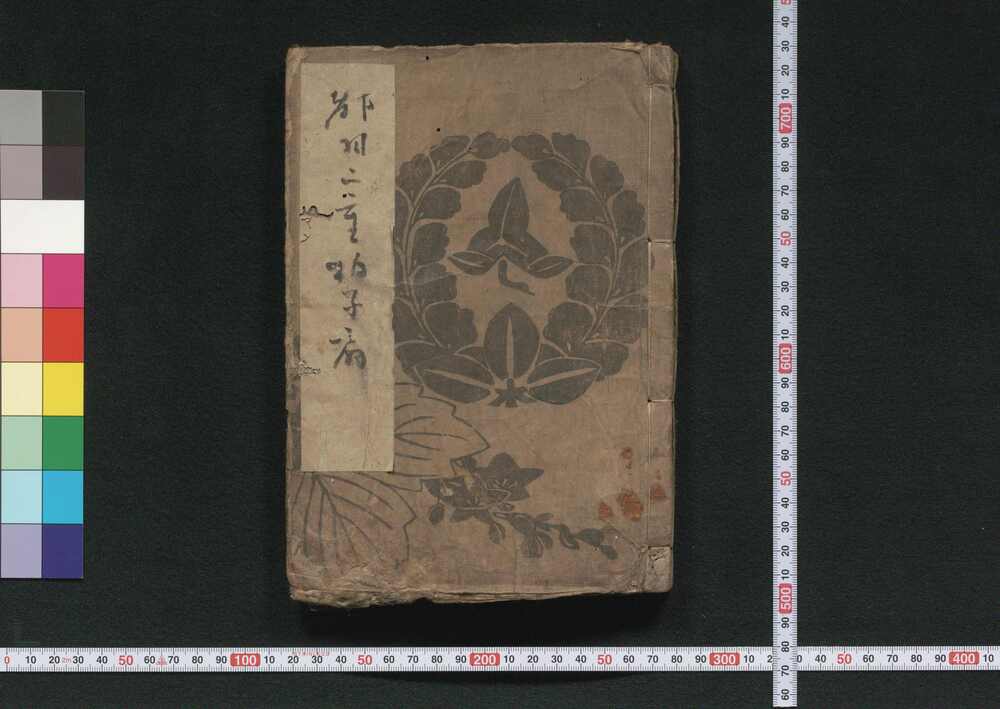 都羽二重拍子扇
0 10 20 2m 30 40 50 60 70 80 90 100 10 20 30 40 50 60 70 80 90 200 10 20 30 40 50 60 70 80 90 300 10 40 50 60 70 80 90 400 10
40 30 20 10 700 90 80 70 60 50 40 30 20 10 600 90 80 70 60 50 40 30 20 10 500 90 80 70 60